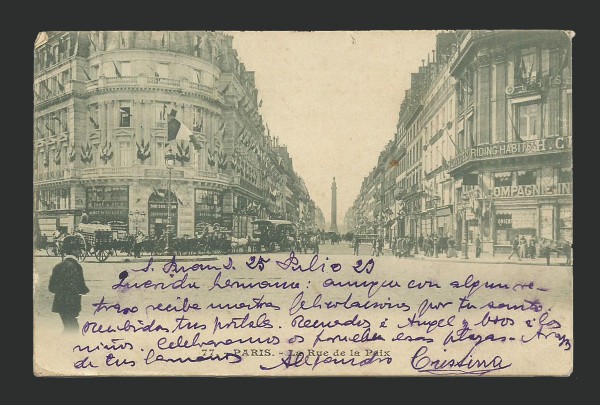 RIDING HABITS H. C
COMPAGNIE IN
S. Juan S. 25 Julio 23
Querida hermana: aunque con algun re-
traso recibe nuestras felicitaciones por tu santo,
recibidas tus postales. Recuerdos á Angel y besos á los
niños. Celebraremos os prueben esas playas. Abrazos
de tus hermanos Alejandro Cristina
77. - PARIS. - La Rue de la Paix